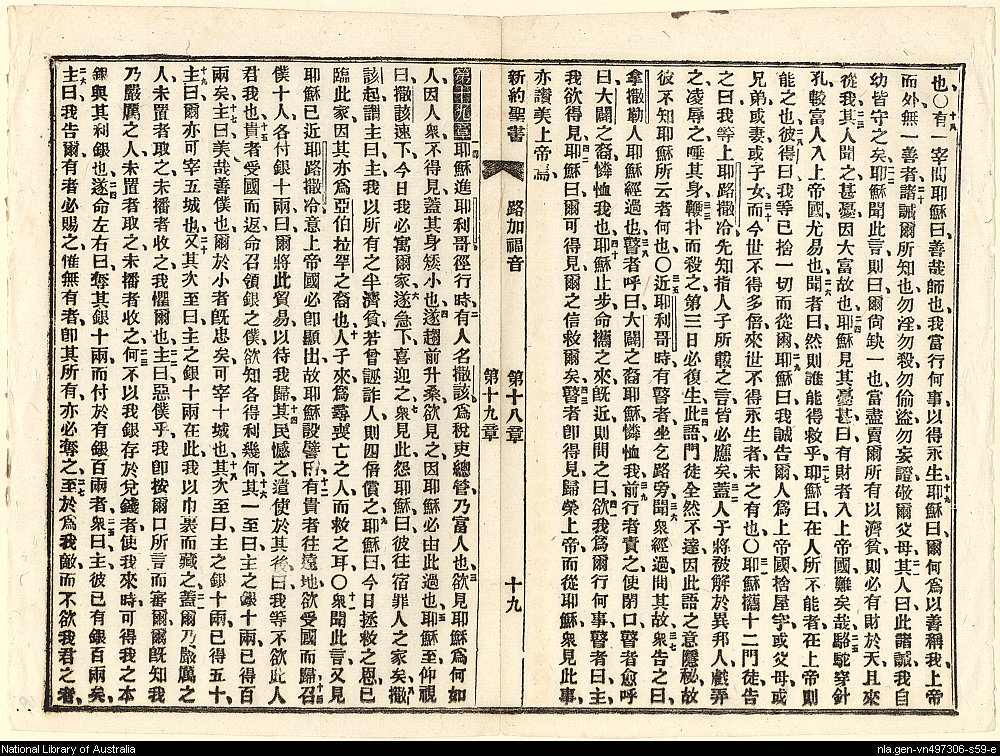 也○有一宰問耶穌曰善哉師也我當行何事以得永生耶穌曰爾何爲以善稱我上帝
而外無一善者諸誡爾所知也勿淫勿殺勿偷盜勿妄證敬爾父母其人曰此諸誡我自
幼皆守之矣耶穌聞此言則曰爾尙缺一也當盡賣爾所有以濟貧則必有財於天且來
從我其人聞之甚憂因大富故也耶穌見其憂甚曰有財者入上帝國難矣哉駱駝穿針
孔較富人入上帝國尤易也聞者曰然則誰能得救乎耶穌曰在人所不能者在上帝則
能之也彼得曰我等已捨一切而從爾耶穌曰我誠告爾人爲上帝國捨屋宇或父母或
兄弟或妻或子女而今世不得多倍來世不得永生者未之有也○耶穌攜十二門徒告
之曰我等上耶路撒冷先知指人子所載之言皆必應矣蓋人子將被解於異邦人戲弄
之凌辱之唾其身鞭扑而殺之第三日必復生此語門徒全然不達因此語之意隱秘故
彼不知耶穌所云者何也○近耶利哥時有瞽者坐乞路旁聞衆經過問其故衆告之曰
拿撒勒人耶穌經過也瞽者呼曰大闢之裔耶穌憐恤我前行者責之使閉口瞽者愈呼
曰大闢之裔憐恤我也耶穌止步命攜之來旣近則問之曰欲我爲爾行何事瞽者曰主
我欲得見耶穌曰爾可得見爾之信救爾矣瞽者卽得見歸榮上帝而從耶穌衆見此事
亦讚美上帝焉
新約聖書 路加福音 第十八章 第十九章 十九
第十九章耶穌進耶利哥徑行時有人名撒該爲稅吏總管乃富人也欲見耶穌爲何如
人因人衆不得見蓋其身矮小也遂趨前升桑欲見之因耶穌必由此過也耶穌至仰視
曰撒該速下今日我必寓爾家遂急下喜迎之衆見此怨耶穌曰彼往宿罪人之家矣撒
該起謂主曰主我以所有之半濟貧若曾誣詐人則四倍償之耶穌曰今日拯救之恩已
臨此家因其亦爲亞伯拉罕之裔也人子來爲尋喪亡之人而救之耳○衆聞此言又見
耶穌已近耶路撒冷意上帝國必卽顯出故耶穌設譬曰有貴者往遠地欲受國而歸召
僕十人各付銀十兩曰爾將此貿易以待我歸其民憾之遣使於其後曰我等不欲此人
君我也貴者受國而返命召領銀之僕欲知各得利幾何其一至曰主之銀十兩已得百
兩矣主曰美哉善僕也爾於小者旣忠矣可宰十城也其次至曰主之銀十兩已得五十
主曰爾亦可宰五城也又其次至曰主之銀十兩在此我以巾裹而藏之蓋爾乃嚴厲之
人未置者取之未播者收之我懼爾也主曰惡僕乎我卽按爾口所言而審爾爾旣知我
乃嚴厲之人未置者取之未播者收之何不以我銀存於兌錢者使我來時可得我之本
銀與其利銀也遂命左右曰奪其銀十兩而付於有銀百兩者衆曰主彼已有銀百兩矣
主曰我告爾有者必賜之惟無有者卽其所有亦必奪之至於爲我敵而不欲我君之者
National Library of Australia
nla.gen-vn497306-s59-e